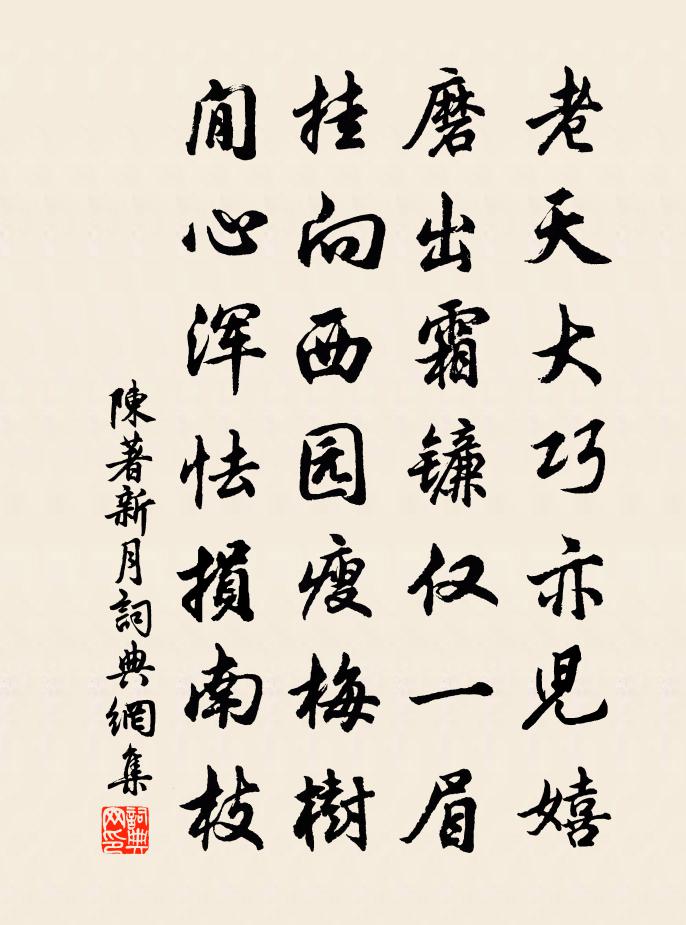 老天大巧亦児嬉
磨出霜镰仅一眉
挂向西园瘦梅樹
閒心浑怯損南枝
陳著新月詞典網集
詞典网印